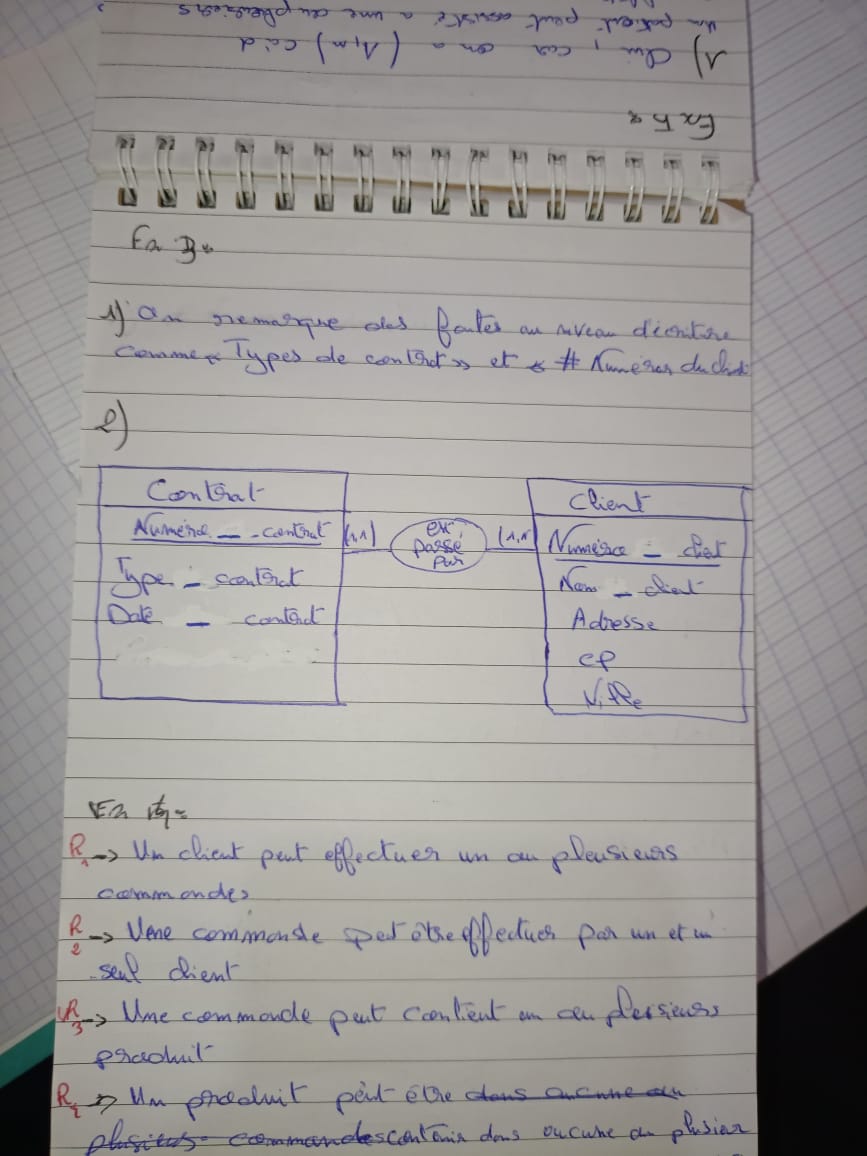 un patient peut assisté à une ou plusieurs
1) Oui, car on a (1,n) càd
Ex 5 :
Ex 3 :
1) On remarque des fautes au niveau d'écriture
comme « Types de contrat » et « # Numéros du client
2)
Contrat
Numéro _ contrat
Type _ contrat
Date _ contrat
(1,1)
est
passé
par
(1,n
Client
Numéro _ client
Nom _ client
Adresse
CP
Ville
Ex 4 :
R1 -> Un client peut effectuer un ou pleusieurs
commandes
R2 -> Une commande peut être effectuer par un et un
seul client
R3 -> Une commande peut contient un ou plusieurs
produit
R4 -> Un produit peut être dans aucune ou
plusieurs commandes contenir dans aucune ou plusier